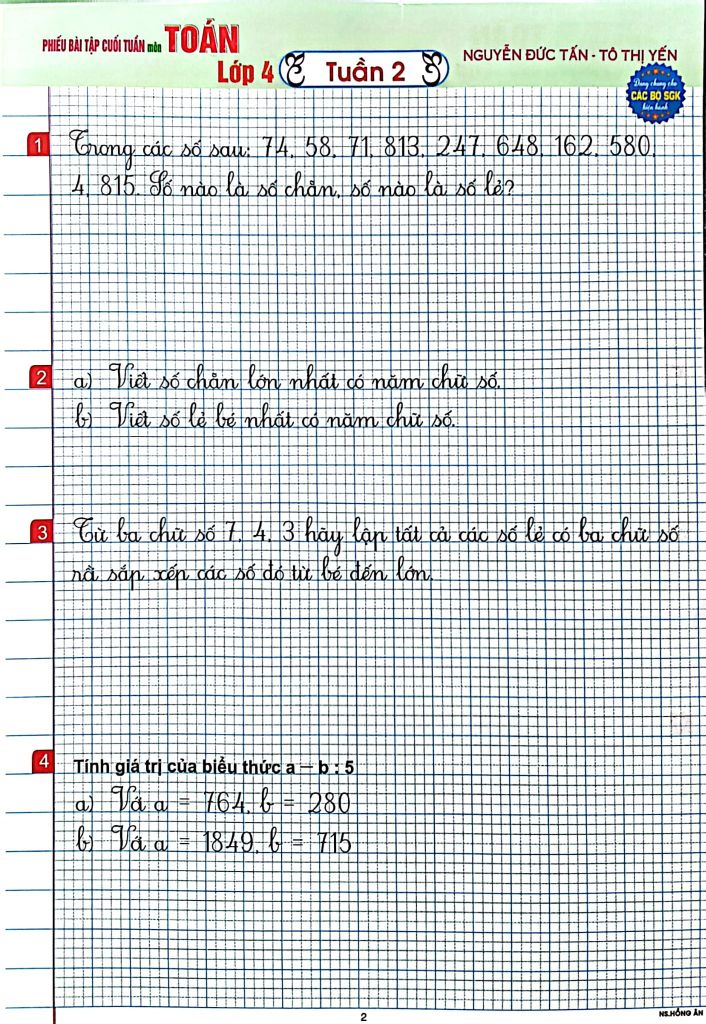 PHIẾU BÀI TẬP CUỐI TUẦN MÔN TOÁN
Lớp 4
Tuần 2
NGUYỄN ĐỨC TẤN - TÔ THỊ YẾN
Dùng chung cho
CÁC BỘ SGK
hiện hành
1
Trong các số sau: 74, 58, 71, 813, 247, 648, 162, 580,
4, 815. Số nào là số chẵn, số nào là số lẻ?
2
a) Viết số chẵn lớn nhất có năm chữ số.
b) Viết số lẻ bé nhất có năm chữ số.
3
Từ ba chữ số 7, 4, 3 hãy lập tất cả các số lẻ có ba chữ số
rồi sắp xếp các số đó từ bé đến lớn.
4
Tính giá trị của biểu thức a – b : 5
a) Với a = 764, b = 280
b) Với a = 1849, b = 715
2
NS.HỒNG ÂN